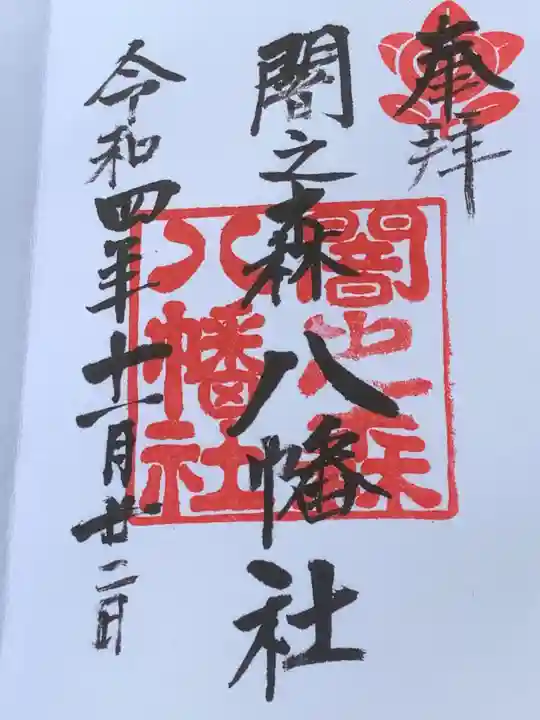 奉拝
闇之森八幡社
闇之森八幡社
令和四年十一月廿二日